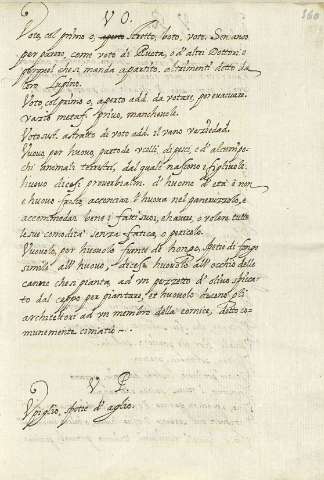 V O.
560
Voto, col primo o, aperto stretto, voto, vote. Sen anco
per parere, come voto di Ruota, o d'altri Dottori; o
per quel che si manda a partito, altrimenti detto da
loro lupino.
Voto, col primo o, aperto add. da votare, per evacuare,
vazio metaf. privo, manchevole.
Voto sust. astratto di voto add. il vano vacuedad.
Vuovo, per huovo, parto de' uccelli, di pesci, e d'alcuni pe-
chi animali terrestri, dal quale nascono i figliuoli.
huovo dicesi proverbialm. d'huomo d'età: è non
e huovo fatto, acconciar l'huova nel paneruzolo, è
accomodar bene i fatti suoi, e havere, o volere tutte
le sue comodità senza fatica, o pericolo.
Vuovolo, per huovolo fungo di hongo, spetie di fongo
simile all'huovo, dicesi huovolo all'occhio delle
canne che si pianta, ad un pezzetto d'olivo spicca-
to dal ceppo per piantare, et huovolo dicono gli
architettori ad un membro della cornice, detto co-
munemente cimatio —.
V P.
Vpiglio, spetie d'aglio.